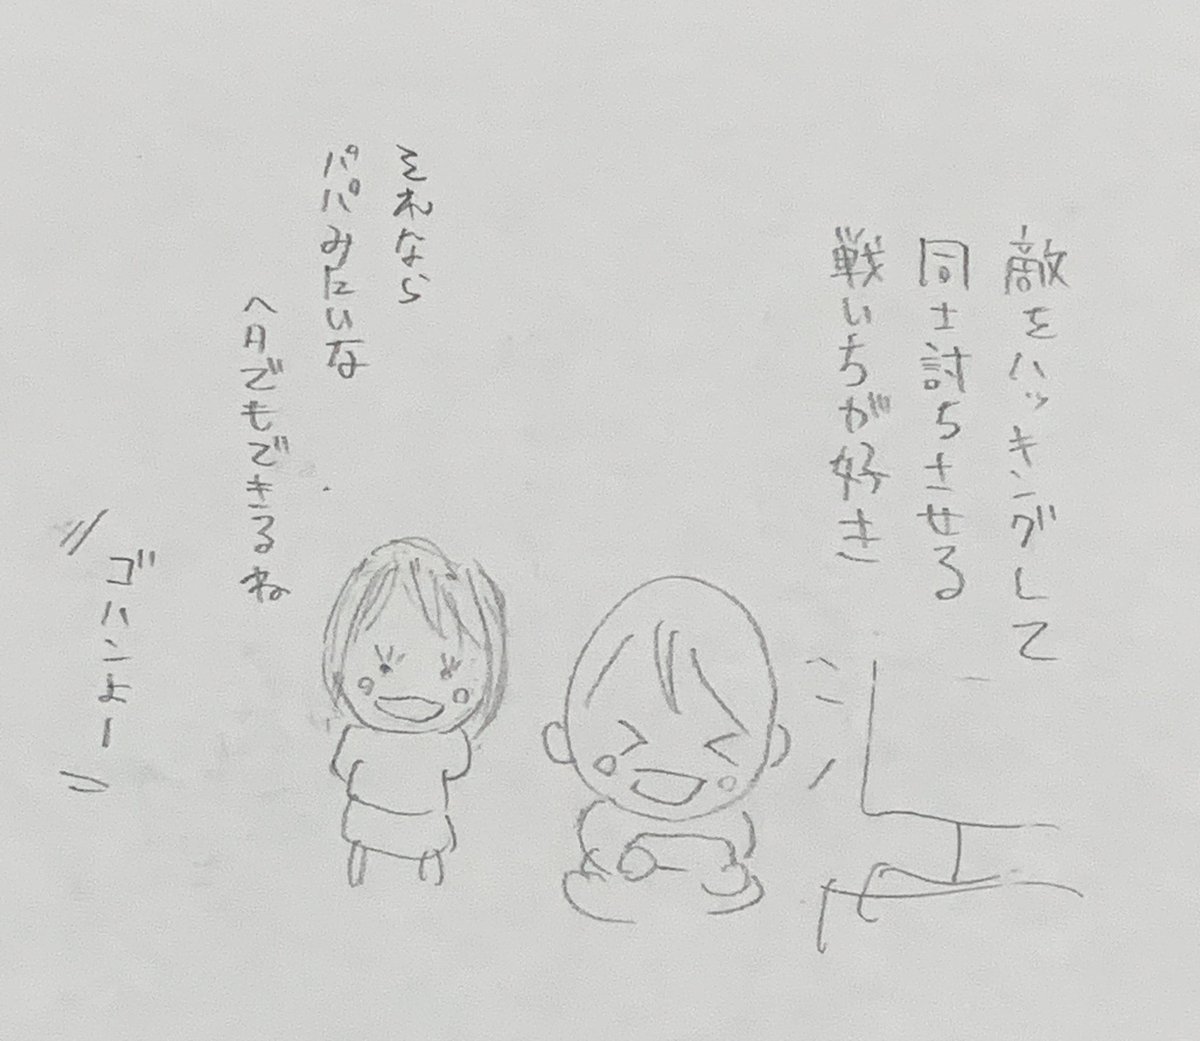 敵をハッキングして
同士討ちさせる
戦いちが好き
それなら
パパみたいな
ヘタでもできるね
ゴハンよー